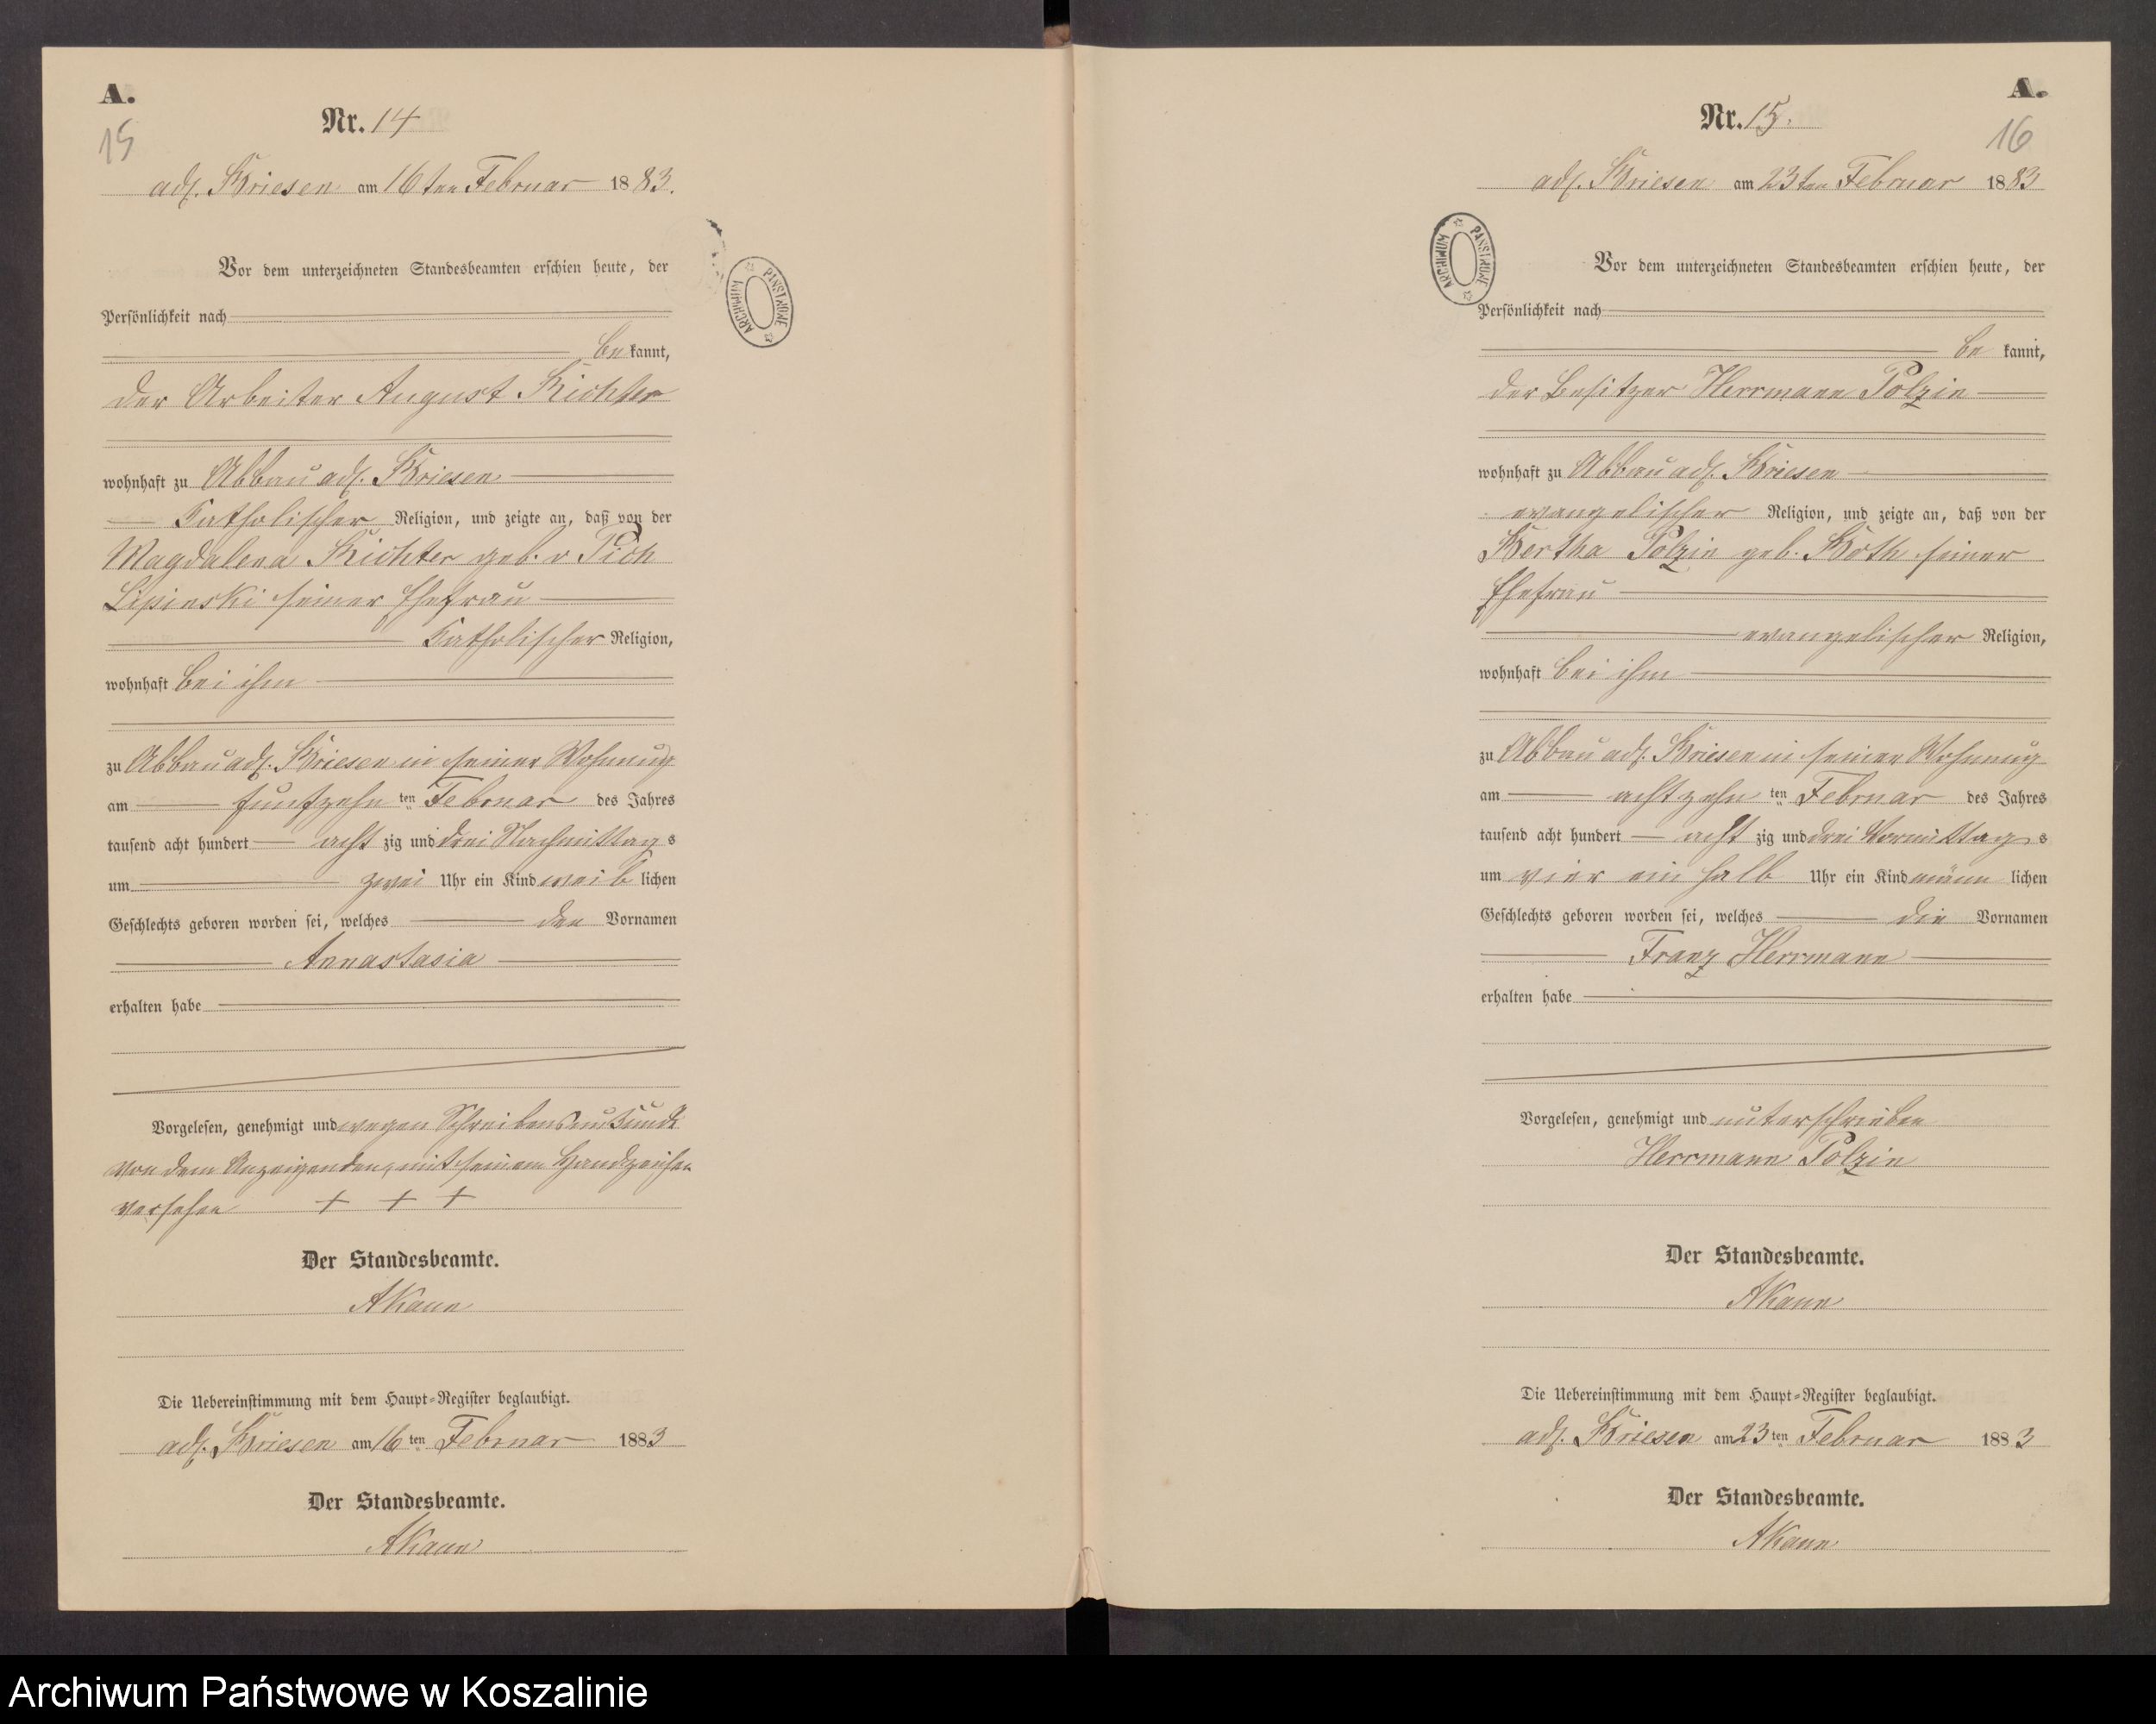 A.
15
Nr. 14
adl. Briesen am 16ten Februar 1883.
Vor dem unterzeichneten Standesbeamten erschien heute, der
Persönlichkeit nach
bekannt,
der Arbeiter August Richter
wohnhaft zu Abbau adl. Briesen
Katholischer Religion, und zeigte an, daß von der
Magdalena Richter geb. v Pich
Lipinski seiner Ehefrau
Katholischer Religion,
wohnhaft bei ihm
zu Abbau adl. Briesen in seiner Wohnung
am funfzehn ten Februar des Jahres
tausend acht hundert acht zig und drei Nachmittag s
um zwei Uhr ein Kind weib lichen
Geschlechts geboren worden sei, welches den Vornamen
Annastasia
erhalten habe
Vorgelesen, genehmigt und wegen Schreibensunkunde
von dem Anzeigenden mit seinem Handzeichen
versehen + + +
Der Standesbeamte.
Die Uebereinstimmung mit dem Haupt-Register beglaubigt.
adl. Briesen am 16 ten Februar 1883
Der Standesbeamte.
ARCHIWUM PAŃSTWOWE
A.
16
Nr. 15.
adl. Briesen am 23ten Februar 1883
ARCHIWUM PAŃSTWOWE
Vor dem unterzeichneten Standesbeamten erschien heute, der
Persönlichkeit nach
be kannt,
der Besitzer Herrmann Polzin
wohnhaft zu Abbau adl. Briesen
evangelischer Religion, und zeigte an, daß von der
Bertha Polzin geb. Both seiner
Ehefrau
evangelischer Religion,
wohnhaft bei ihm
zu Abbau adl. Briesen in seiner Wohnung
am achtzehn ten Februar des Jahres
tausend acht hundert acht zig und drei Vormittag s
um vier ein halb Uhr ein Kind männ lichen
Geschlechts geboren worden sei, welches die Vornamen
Franz Herrmann
erhalten habe
Vorgelesen, genehmigt und unterschrieben
Herrmann Polzin
Der Standesbeamte.
Die Uebereinstimmung mit dem Haupt-Register beglaubigt.
adl. Briesen am 23 ten Februar 1883
Der Standesbeamte.
Archiwum Państwowe w Koszalinie